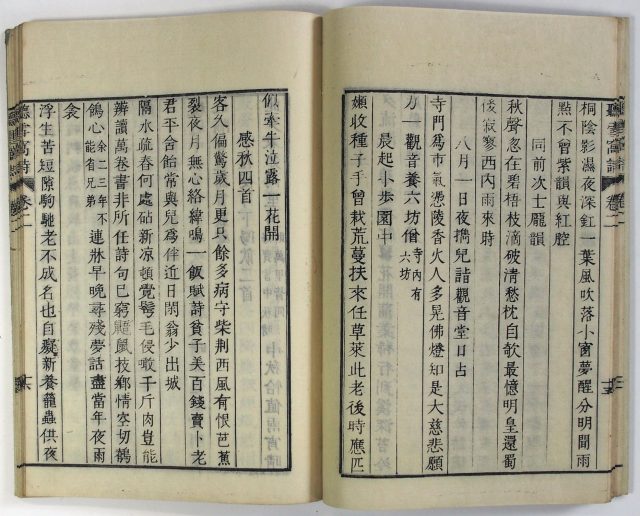 聽雪窩詩 卷二
桐陰影濕夜深釭一葉風吹落小窗夢醒分明聞雨
點不曾紫韻與紅腔
同前次士龐韻
秋聲忽在碧梧枝滴破清愁枕自欹最憶明皇還蜀
後寂寥西內雨來時
八月一日夜攜兒詣觀音堂口占
寺門為市氣憑陵香火人多晃佛燈知是大慈悲願
力一觀音養六坊僧 寺內有六坊
晨起小步園中
嬾收種子手曾栽荒蔓扶來任草萊此老後時應匹
似牽牛泣露一花開
感秋四首
客久偏驚歲月更只餘多病守柴荆西風有恨芭蕉
裂夜月無心絡緯鳴一飯賦詩貧子美百錢賣卜老
君平含飴常與兒爲伴近日閒翁少出城
隔水疏舂何處砧新凉頓覺鬢毛侵噉千斤肉豈能
辨讀萬卷書非所任詩句已窮鼯鼠技鄉情空切鶺
鴒心 余二三年不能省兄弟 連牀早晚尋殘夢話盡當年夜雨
衾
浮生苦短隙駒馳老不成名也自癡新養籠蟲供夜
聽雪窩詩 卷二 十六